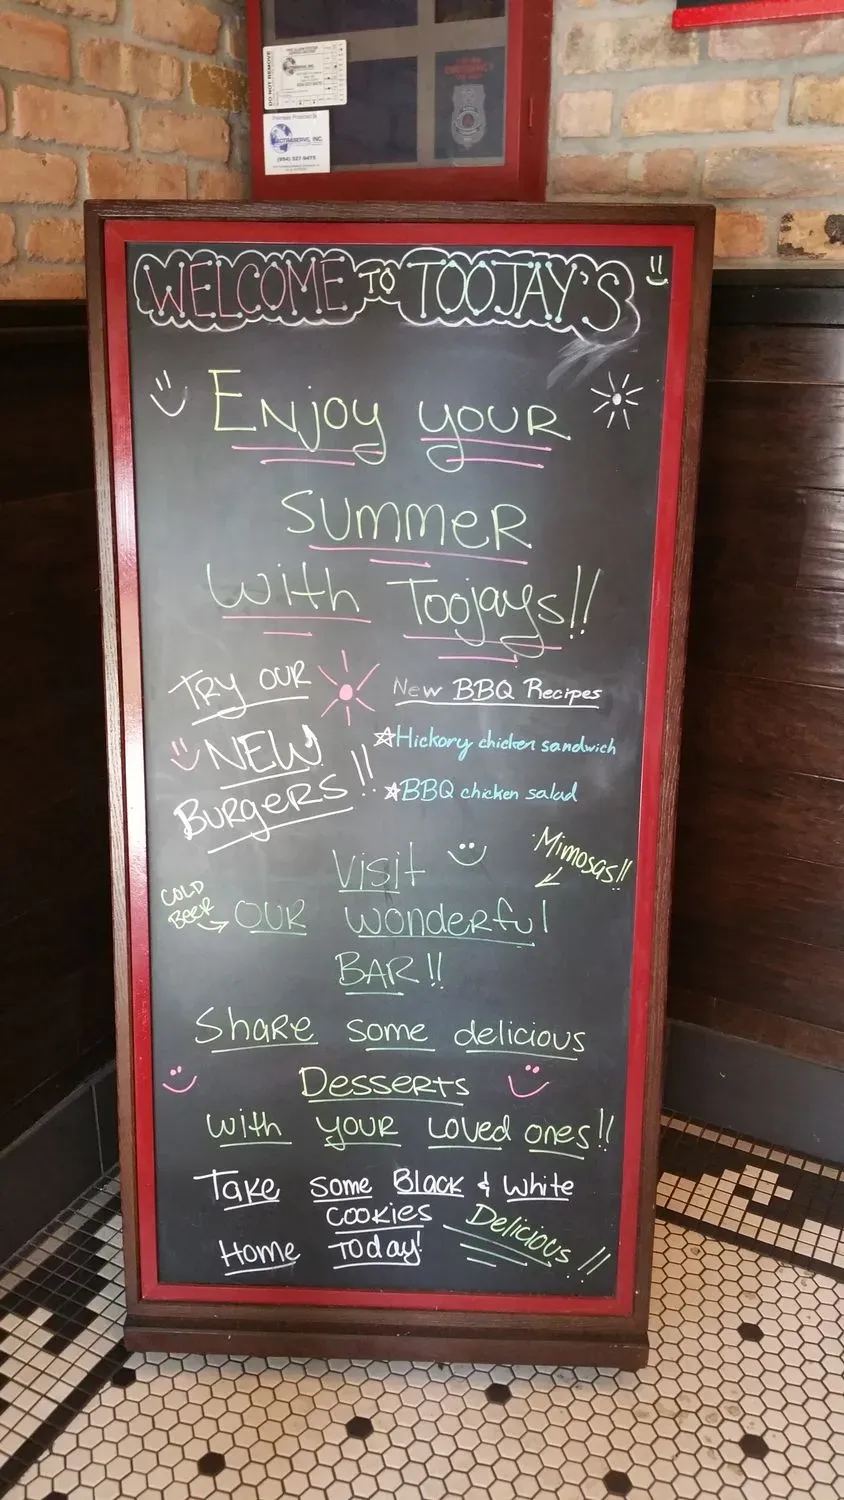 DO NOT REMOVE
(954) 327-9475
WELCOME TO TOOJAY'S
Enjoy your
Summer
with Toojays!!
Try our
NEW
Burgers!!
New BBQ Recipes
Hickory chicken sandwich
BBQ chicken salad
Mimosas!!
Visit
COLD
BEER
our wonderful
BAR!!
Share some delicious
Desserts
with your loved ones!!
Take some Black & White
Cookies
Delicious!!
Home Today!